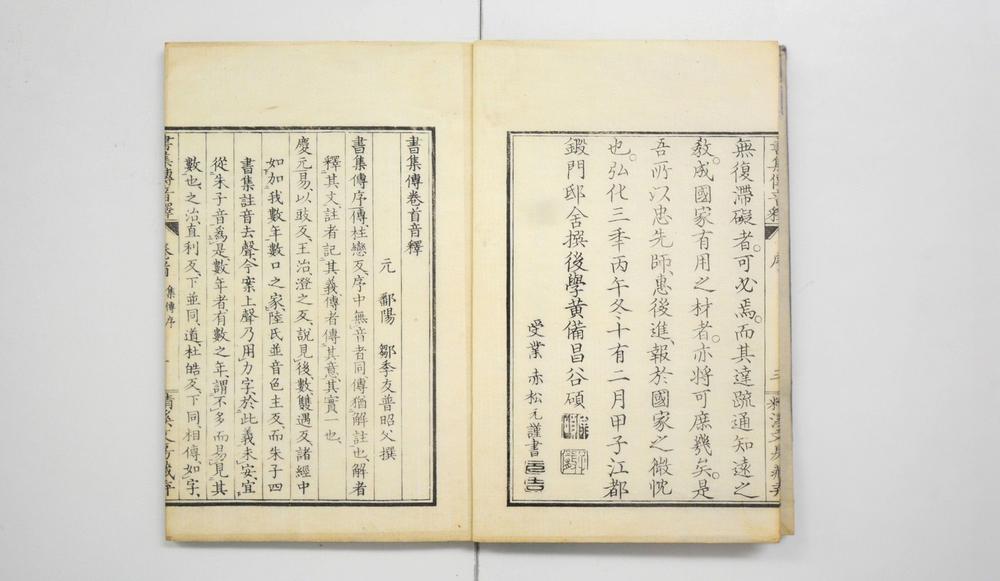 無復滯礙者。可必焉。而其達疏通知遠之
敎。成國家有用之材者。亦將可庶幾矣。是
吾所以忠先師、惠後進、報於國家之微忱
也。弘化三年丙午冬十有二月甲子江都
鍛門邸舍撰後學黃備昌谷碩
受業 赤松元謹書
書集傳卷首音釋
元 鄱陽 鄒季友晉昭父撰
書集傳序傳、柱戀反、序中無音者同傳猶解註也、解者
釋其文、註者記其義傳者傳其意、其實一也、
慶元易、以豉反、王治、澄之反、說見後數、雙遇反、諸經中
如加我數年數口之家、陸氏並音色主反、而朱子四
書集註音去聲、今案上聲乃用力字、於此義未安、宜
從朱子音爲是、數年者、有數之年、謂不多而易見其
數也、之治、直利反、下並同、道、杜皓反、下同、相傳、如字、
書集傳音釋 卷首 集傳序 一